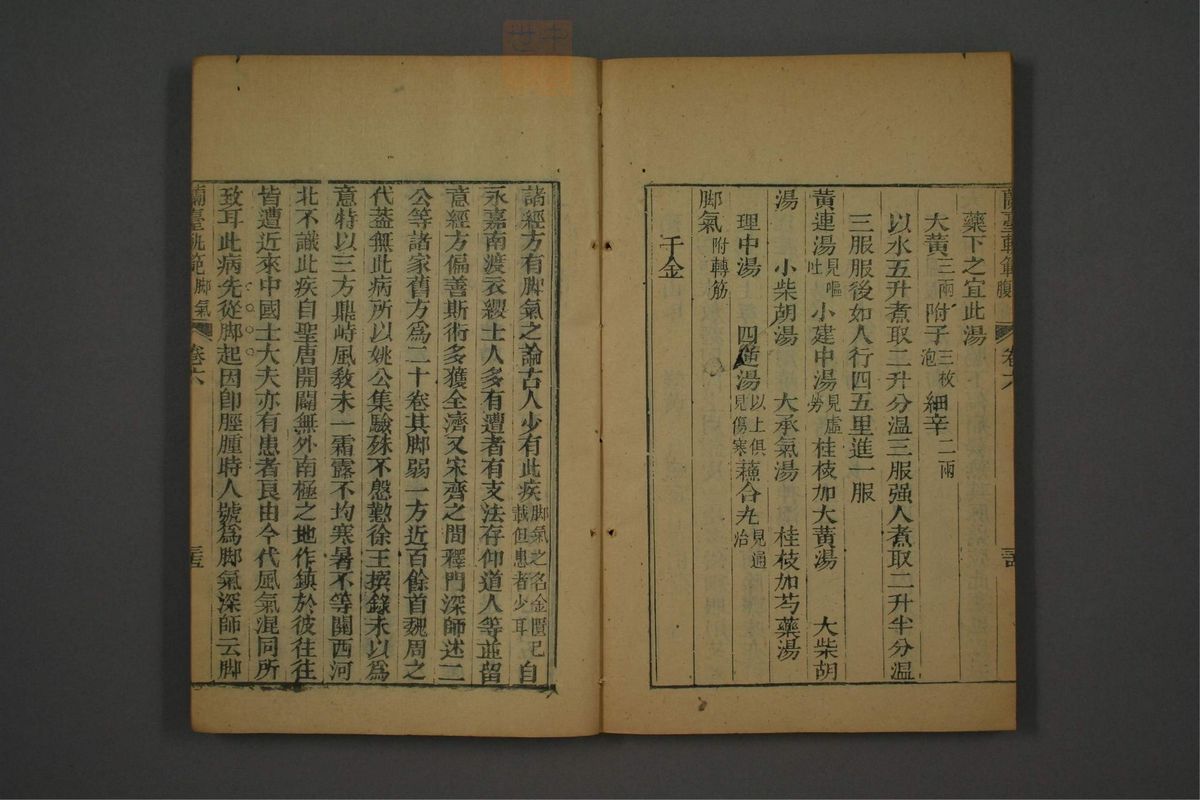 蘭臺軌範 卷六
藥下之宜此湯
大黃三兩附子三枚泡細辛二兩
以水五升煮取二升分溫三服强人煮取二升半分溫
三服服後如人行四五里進一服
黃連湯見嘔吐小建中湯見虛勞桂枝加大黃湯 大柴胡
湯 小柴胡湯 大承氣湯 桂枝加芍藥湯
理中湯 四湯以上俱見傷寒蘇合丸見通治
脚氣附轉筋
千金
諸經方有脚氣之論古人少有此疾脚氣之名金匱已載但患者少耳自
永嘉南渡衣纓士人多有遭者有支法存仰道人等並留
意經方偏善斯術多獲全濟又宋齊之間釋門深師述二
公等諸家舊方爲二十卷其脚弱一方近百餘首魏周之
代蓋無此病所以姚公集驗殊不慇懃徐王撰錄未以爲
意特以三方鼎峙風敎未一霜露不均寒暑不等關西河
北不識此疾自聖唐開闢無外南極之地作鎮於彼往往
皆遭近來中國士大夫亦有患者良由今代風氣混同所
致耳此病先從脚起因卽脛腫時人號爲脚氣深師云脚
蘭臺軌範脚氣 卷六